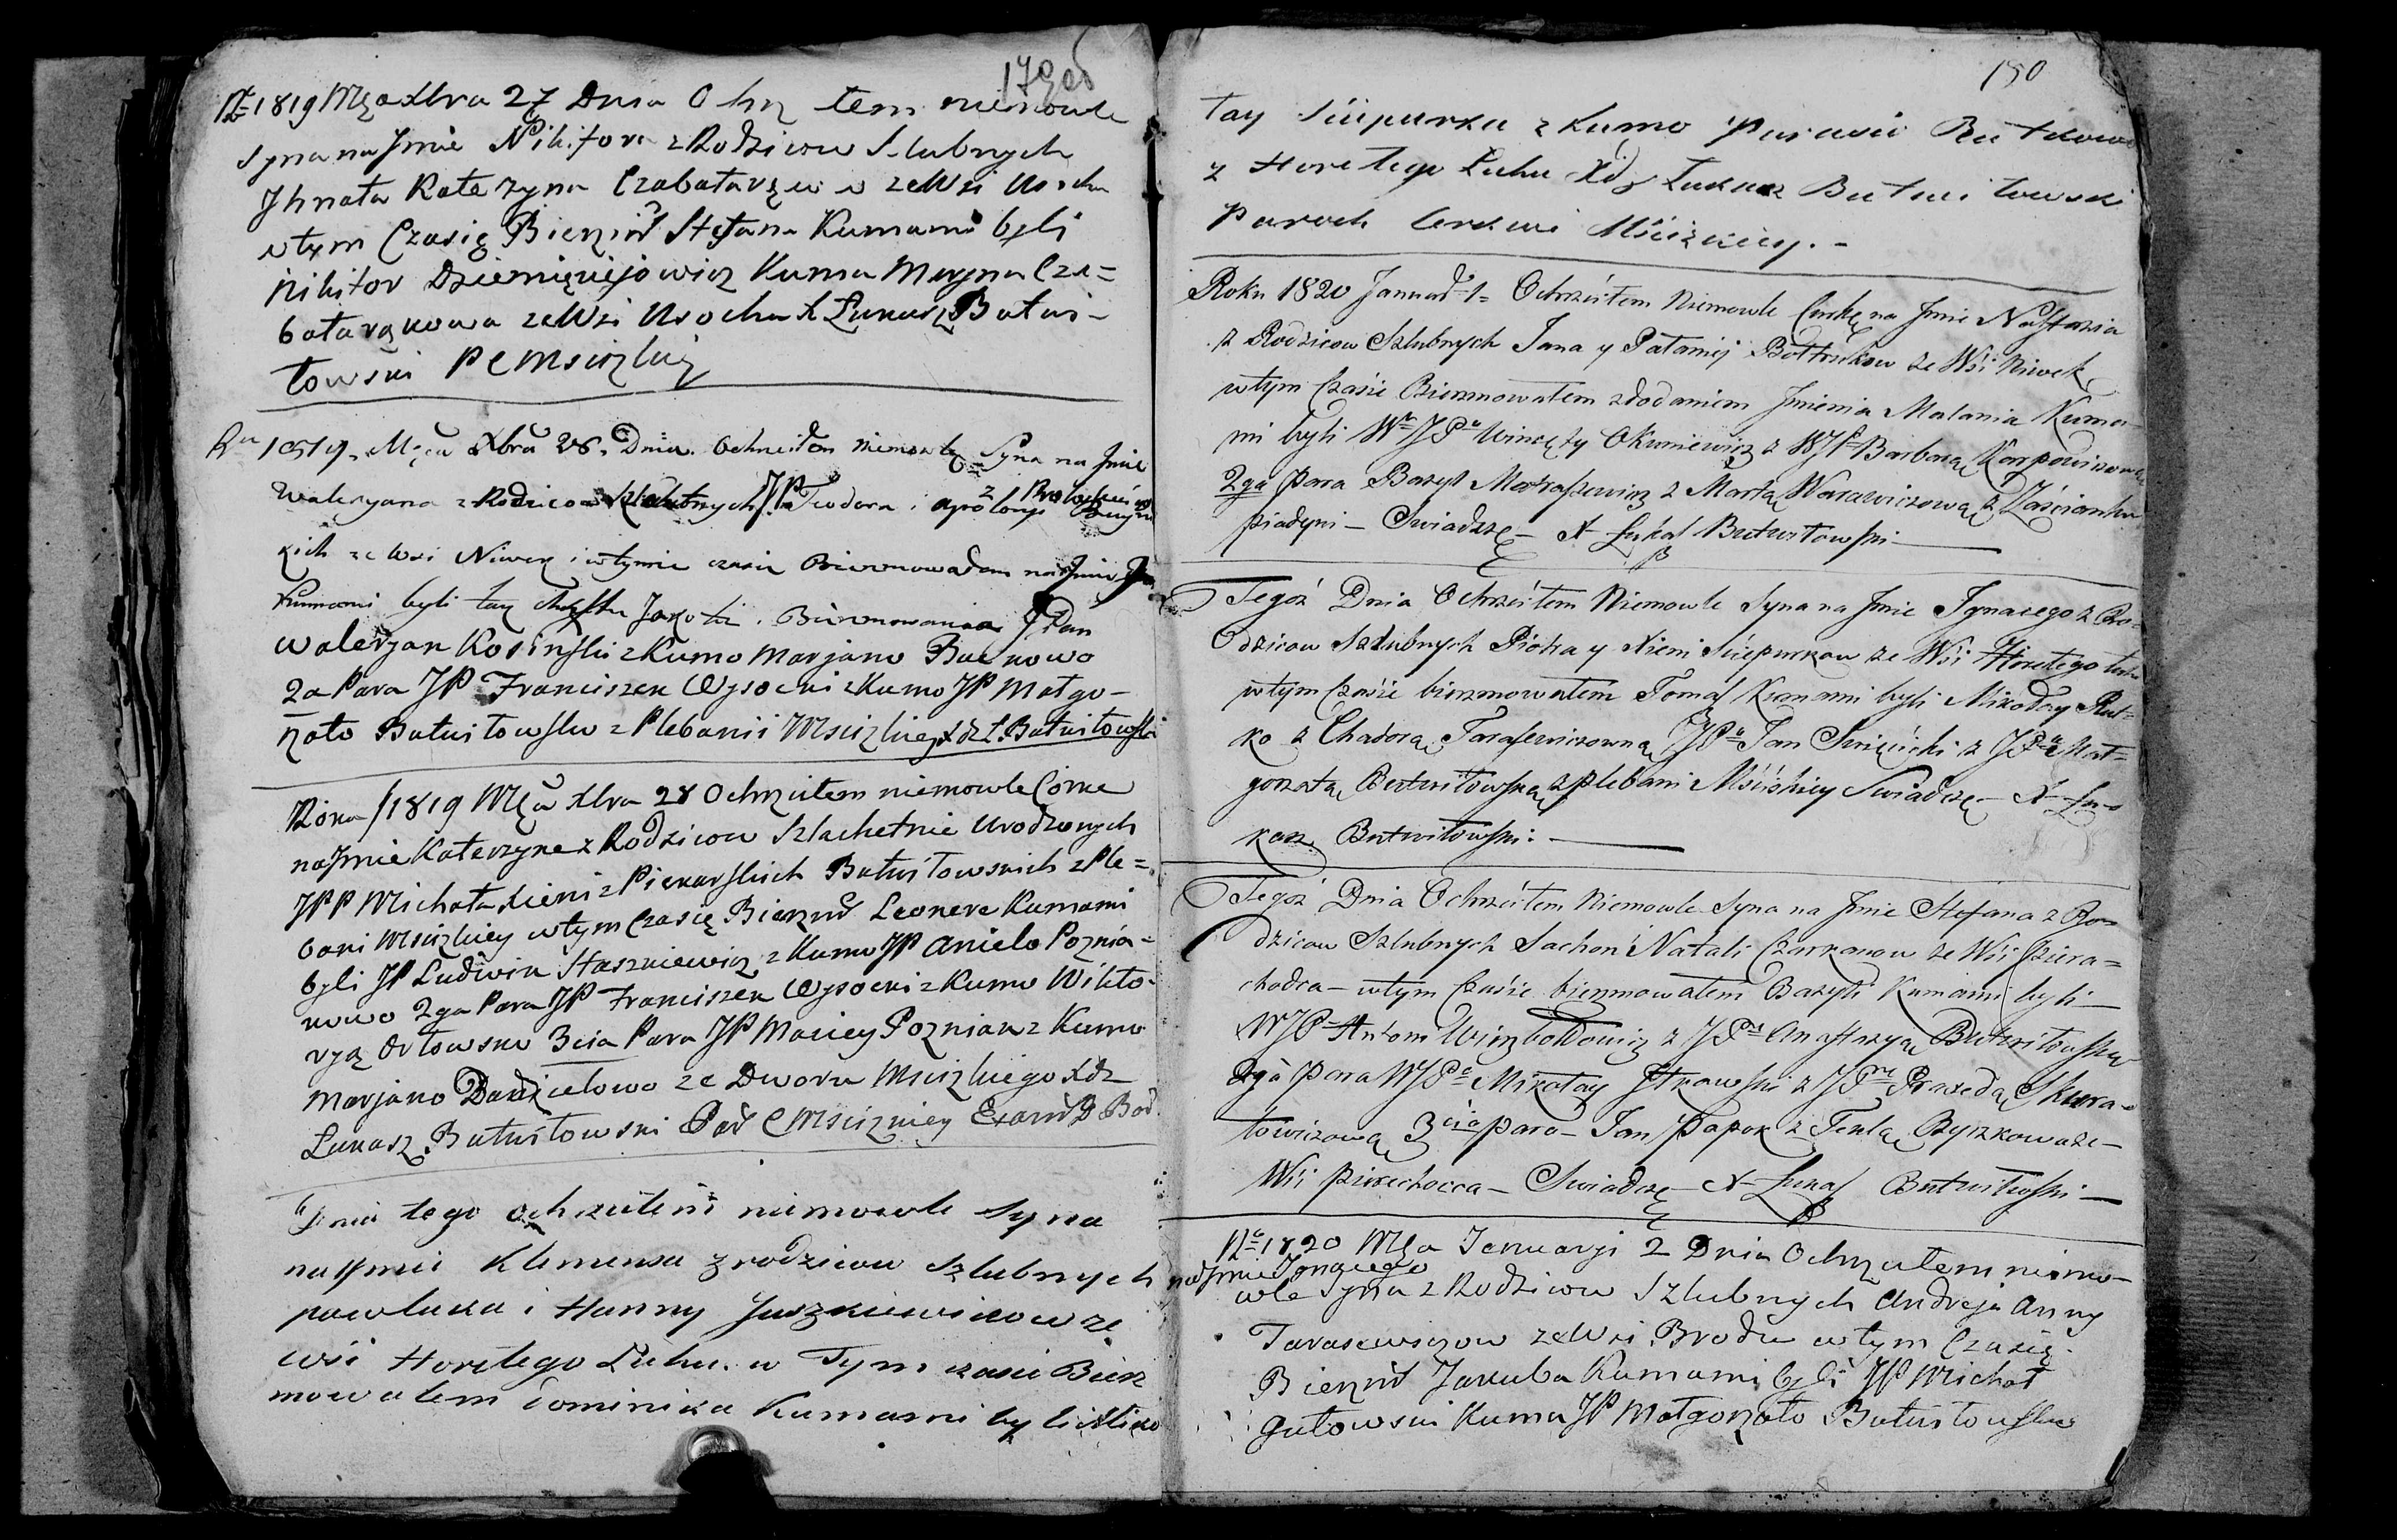 179
Rº 1819 Mca Xbra 27 Dnia Ochrz tem niemowle
Syna na Jmie Nikifora z Rodzicow Slubnych
Jhnata Katerzyna Czabatarzew w ze Wsi Usocha
w tym Czasię Bierzm Stefana Kumami byli
Nikifor Dziemięniejowicz Kuma Maryna Cza=
batarzkowa ze Wsi Usocha X Łukasz Butwi-
towski P C Mscizkiey
Ru 1819. Mca Xbra 28. Dnia. Ochrzciłem niemowlę Syna na Jmie
Waleryana z Rodzicow Szlubnych JP. Teodora i apolonji z
kich ze Wsi Niwek i w tymże czasie Biermowałem na Jmie
Kumami byli tay Jakoteż Biermowania JPan
Waleryan Kosinski z Kumo Marjano Buckowo
2a Para JP Franciszek Wysocki z Kumo JP Małgo-
rzato Butwitowsko z Plebanii Mscizkiey Xdz Ł. Butwitowski
Roku 1819 Mca Xbra 28 Ochrzcitem niemowle Corke
na Jmie Katerzyne z Rodzicow Szlachetnie Urodzonych
JPP Michała Xieni z Piekarskich Butwitowskich z Ple=
bani Mscizkiey w tym Czasię Bierzm Leonore Kumami
byli JP Ludwik Staszkiewicz z Kumo JP Anielo Poznia=
kowo 2ga Para JP Franciszek Wysocki z Kumo Wikto-
ryą Orłowsko 3cia Para JP Maciey Pozniak z Kumo
Marjano Danielowo ze Dworu Mscizkiego Xdz
Łukasz Butwitowski Par C Mscizkiey
Dnia tego ochrzcitem niemowle Syna
na Jmie Klemensa z rodzicow Szlubnych
pawluka i Hanny Juszkiewiczow ze
wsi Horełego Luhu. w Tym czasie Bierz
mowałem Dominika Kumami byli Miko
150
łay Sciepurka z Kumo Parasio Rutkowo
z Horełego Luhu Xdz Łukasz Butwitowski
Paroch Cerkwi Mscizkiey. -
Roku 1820 Januar 1= Ochrzcitem Niemowle Curkę na Jmie Nastazia
z Rodzicow Szlubnych Jana y Pałanij Bottrukow ze Wsi Niwek
w tym Czasie Bierzmowałem z dodaniem Jmienia Malania Kuma
mi byli Wny JPn Wincęty Okuniewicz z WJP Barbarą Karpowiczową
2ga para Bazyl Matraszewicz z Martą Warawiczową z Zaścianku
piadyni - Swiadczę - X Łukasz Butwitowski
Tegoż Dnia Ochrzcitem Niemowle Syna na Jmie Jgnacego z Ro=
dzicow Szlubnych Piotra y Xieni Sciepurkow ze Wsi Horełego Luhu
w tym Czasie bierzmowałem Tomasz Kumami byli Mikołay Rut=
ko z Chadorą Tarasewiczowną JPn Jan Swięcicki z JPną Mał=
gorzatą Butwitowską z plebani Mścishiey Swiadczę - X Łu=
kasz Butwitowski: -
Tegoż Dnia Ochrzcitem Niemowle Syna na Jmie Stefana z Ro=
dzicow Szlubnych Sachon Natali Czarkanow ze Wsi Piera=
chodca - w tym Czasie bierzmowałem Bazyli Kumami byli -
WJP Antoni Wimboldowicz z JPną Anastazyą Butwitowską
2ga para WJPn Mikołay Jtkowski z JPną Praxedą Skura=
towiczową 3cia para - Jan Papok z Teklą Byczkowa ze -
Wsi Pierechocca - Swiadczę - X Łukasz Butwitowski -
Rº 1820 Mca Januarji 2 Dnia Ochrzcitem niemo-
na Jmie Jgnacego
wle Syna z Rodzicow Szlubnych Andreja Anny
Tarasewiczow ze Wsi Brodu w tym Czasię
Bierzm Jakuba Kumami byli JP Michał
Gutowski Kuma JP Małgorzato Butwitowsko